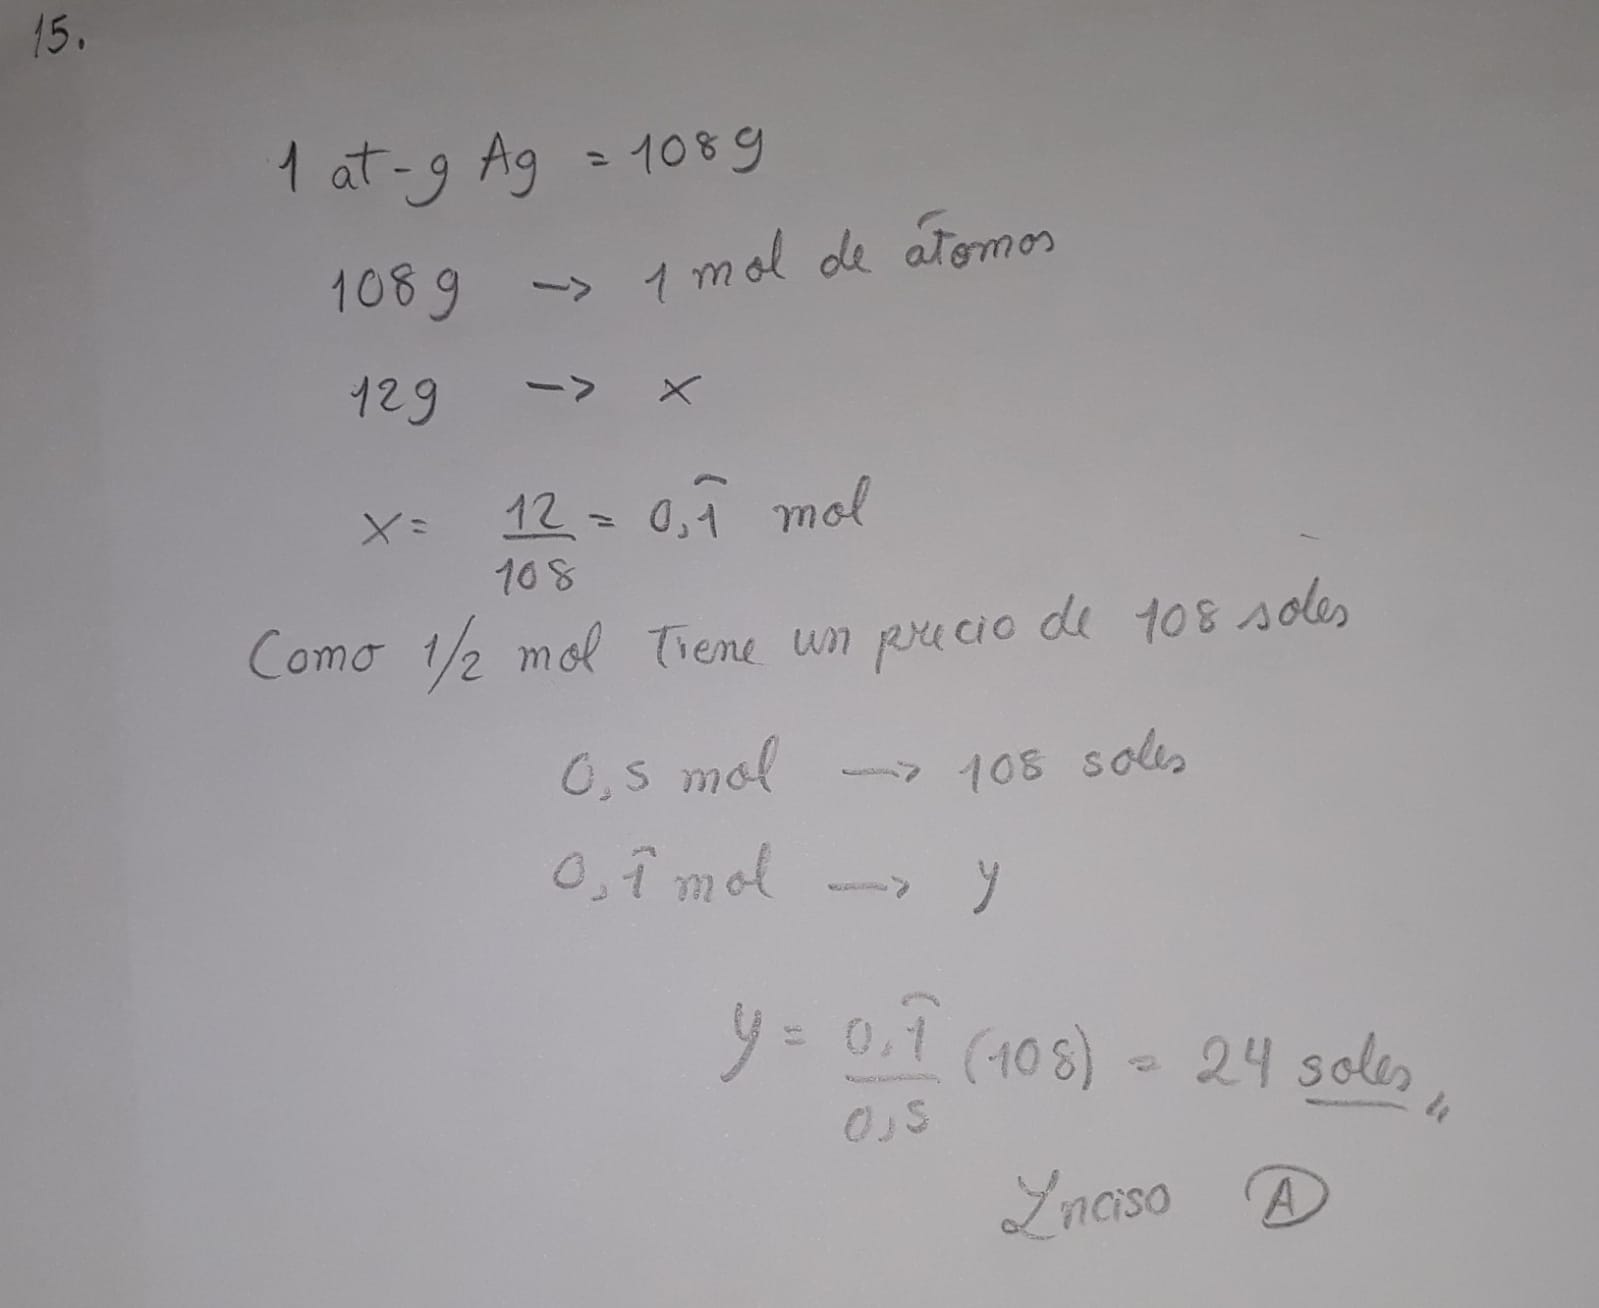 15.
1 at-g Ag = 108g
108g -> 1 mol de átomos
12g -> x
x = 12/108 = 0,1̂ mol
Como 1/2 mol Tiene un precio de 108 soles
0,5 mol -> 108 soles
0,1̂ mol -> y
y = 0,1̂/0,5 (108) = 24 soles,,
Inciso A